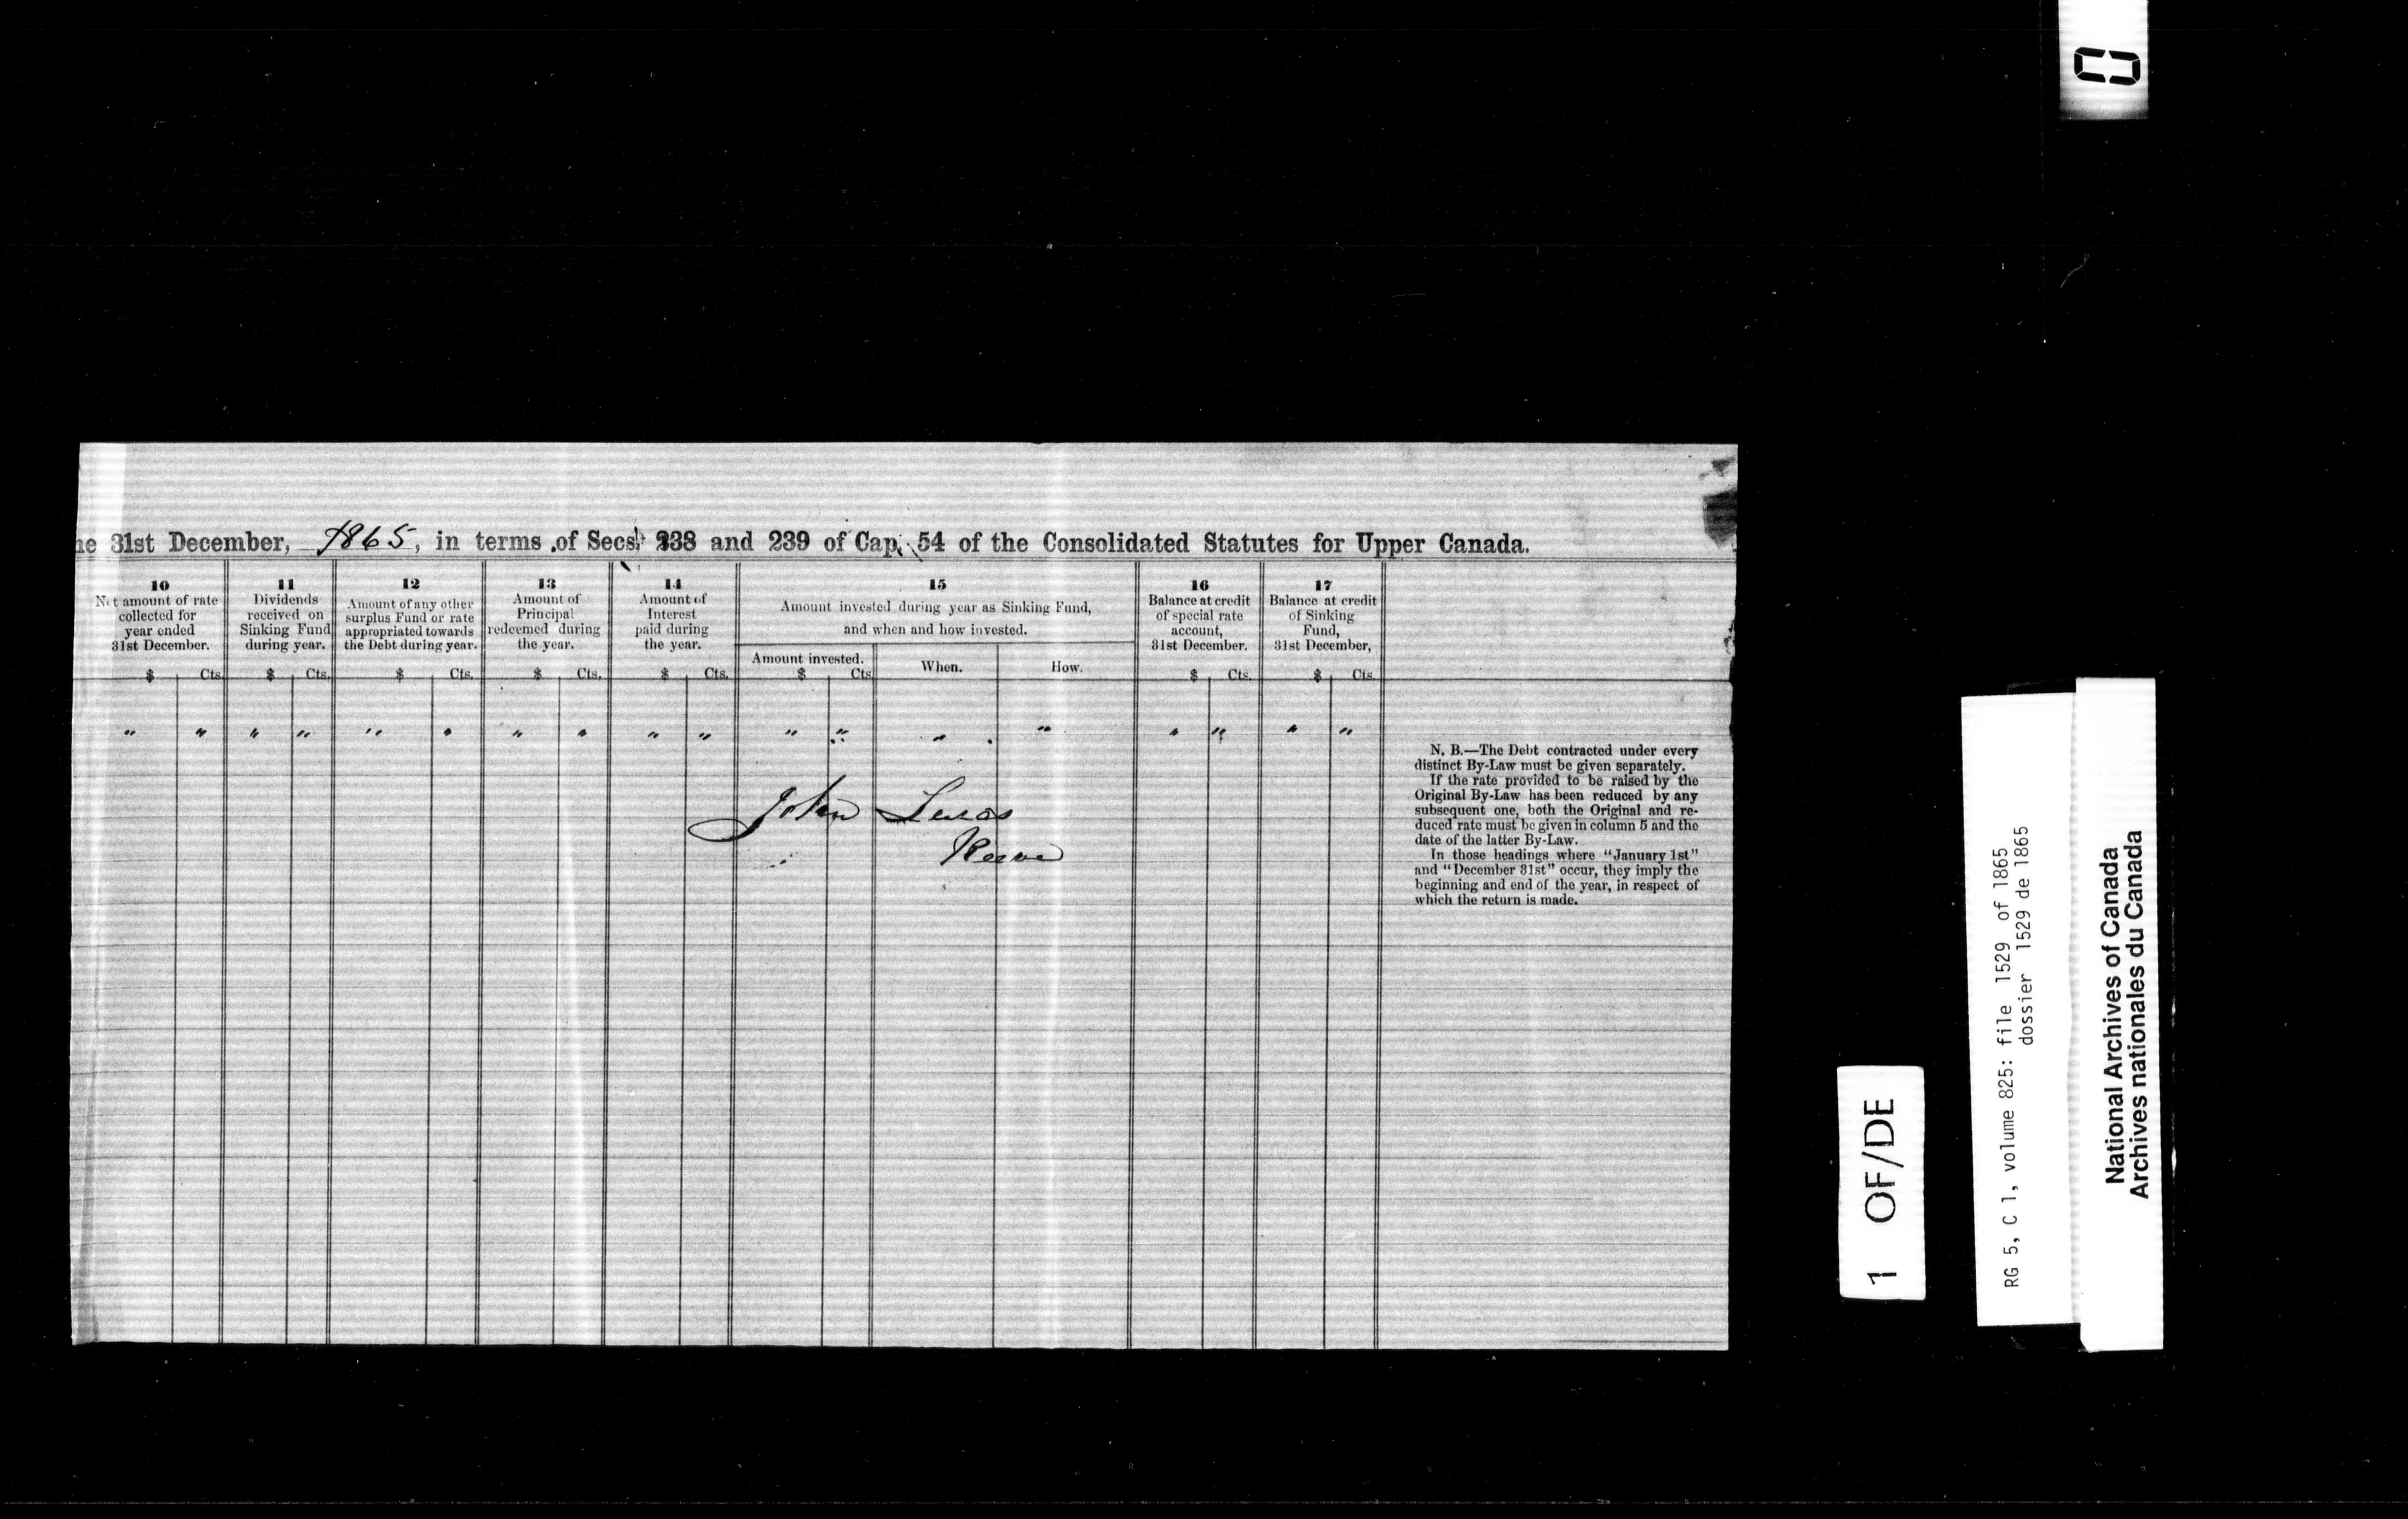 he 31st December, 1865, in terms of Secs. 238 and 239 of Cap. 54 of the Consolidated Statutes for Upper Canada.
10
Net amount of rate
collected for
year ended
31st December.
$ Cts.
11
Dividends
received on
Sinking Fund
during year.
$ Cts.
12
Amount of any other
surplus Fund or rate
appropriated towards
the Debt during year.
$ Cts.
13
Amount of
Principal
redeemed during
the year.
$ Cts.
14
Amount of
Interest
paid during
the year.
$ Cts.
15
Amount invested during year as Sinking Fund,
and when and how invested.
Amount invested.
$ Cts
When.
How.
16
Balance at credit
of special rate
account,
31st December.
$ Cts.
17
Balance at credit
of Sinking
Fund,
31st December,
$ Cts.
" " " " " " " " " " " " " " " " " "
John Lucas
Reeve
N. B.—The Debt contracted under every
distinct By-Law must be given separately.
If the rate provided to be raised by the
Original By-Law has been reduced by any
subsequent one, both the Original and re-
duced rate must be given in column 5 and the
date of the latter By-Law.
In those headings where “January 1st”
and “December 31st” occur, they imply the
beginning and end of the year, in respect of
which the return is made.
1 OF/DE
RG 5, C 1, volume 825: file 1529 of 1865
dossier 1529 de 1865
National Archives of Canada
Archives nationales du Canada